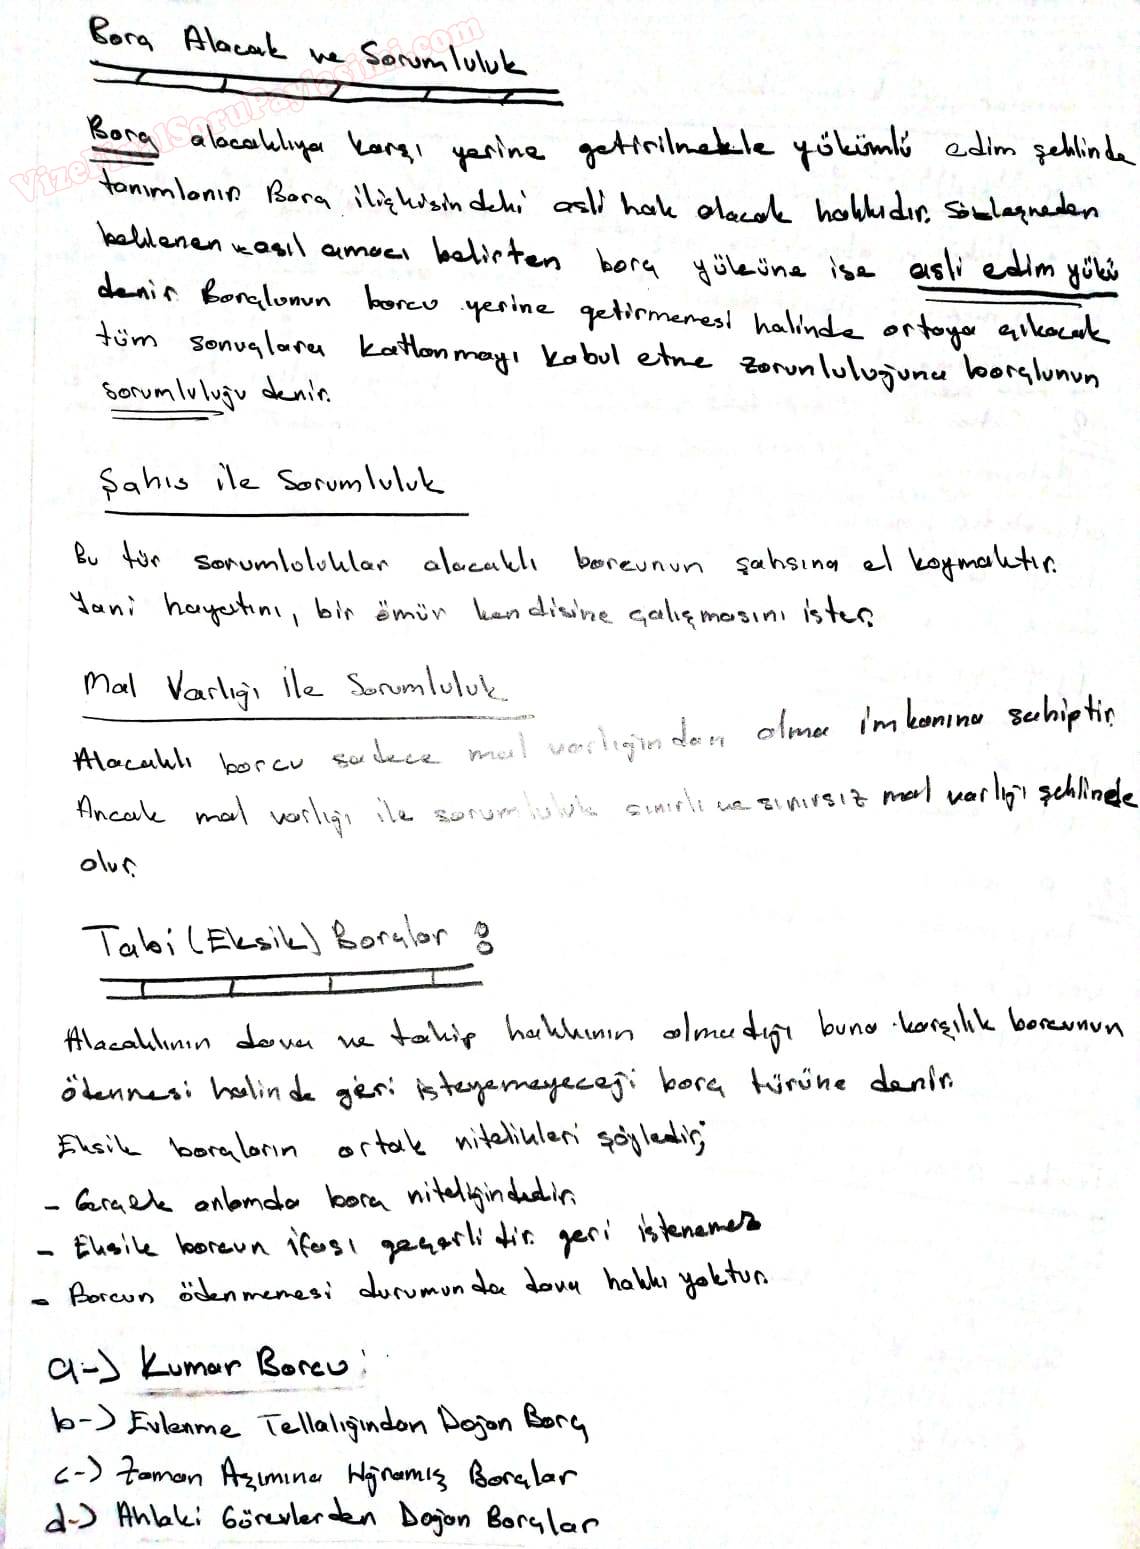 Borç Alacak ve Sorumluluk
VizeFinalSoruPaylasimi.com
Borç alacaklıya karşı yerine getirilmekle yükümlü edim şeklinde
tanımlanır. Borç ilişkisindeki asli hak alacak hakkıdır. Sözleşmeden
beklenen asıl amacı belirten borç yüküne ise asli edim yükü
denir. Borçlunun borcu yerine getirmemesi halinde ortaya çıkacak
tüm sonuçlara katlanmayı kabul etme zorunluluğuna borçlunun
sorumluluğu denir.
Şahıs ile Sorumluluk
Bu tür sorumluluklar alacaklı borcunun şahsına el koymaktır.
Yani hayatını, bir ömür kendisine çalışmasını ister.
Mal Varlığı ile Sorumluluk
Alacaklı borcu sadece mal varlığından alma imkanına sahiptir.
Ancak mal varlığı ile sorumluluk sınırlı ve sınırsız mal varlığı şeklinde
olur.
Tabi (Eksik) Borçlar :
Alacaklının dava ve takip hakkının olmadığı buna karşılık borcunun
ödenmesi halinde geri isteyemeyeceği borç türüne denir.
Eksik borçların ortak nitelikleri şöyledir;
- Gerçek anlamda borç niteliğindedir.
- Eksik borcun ifası geçerlidir. geri istenemez
- Borcun ödenmemesi durumunda dava hakkı yoktur.
a-) Kumar Borcu :
b-) Evlenme Tellalığından Doğan Borç
c-) Zaman Aşımına Uğramış Borçlar
d-) Ahlaki Görevlerden Doğan Borçlar